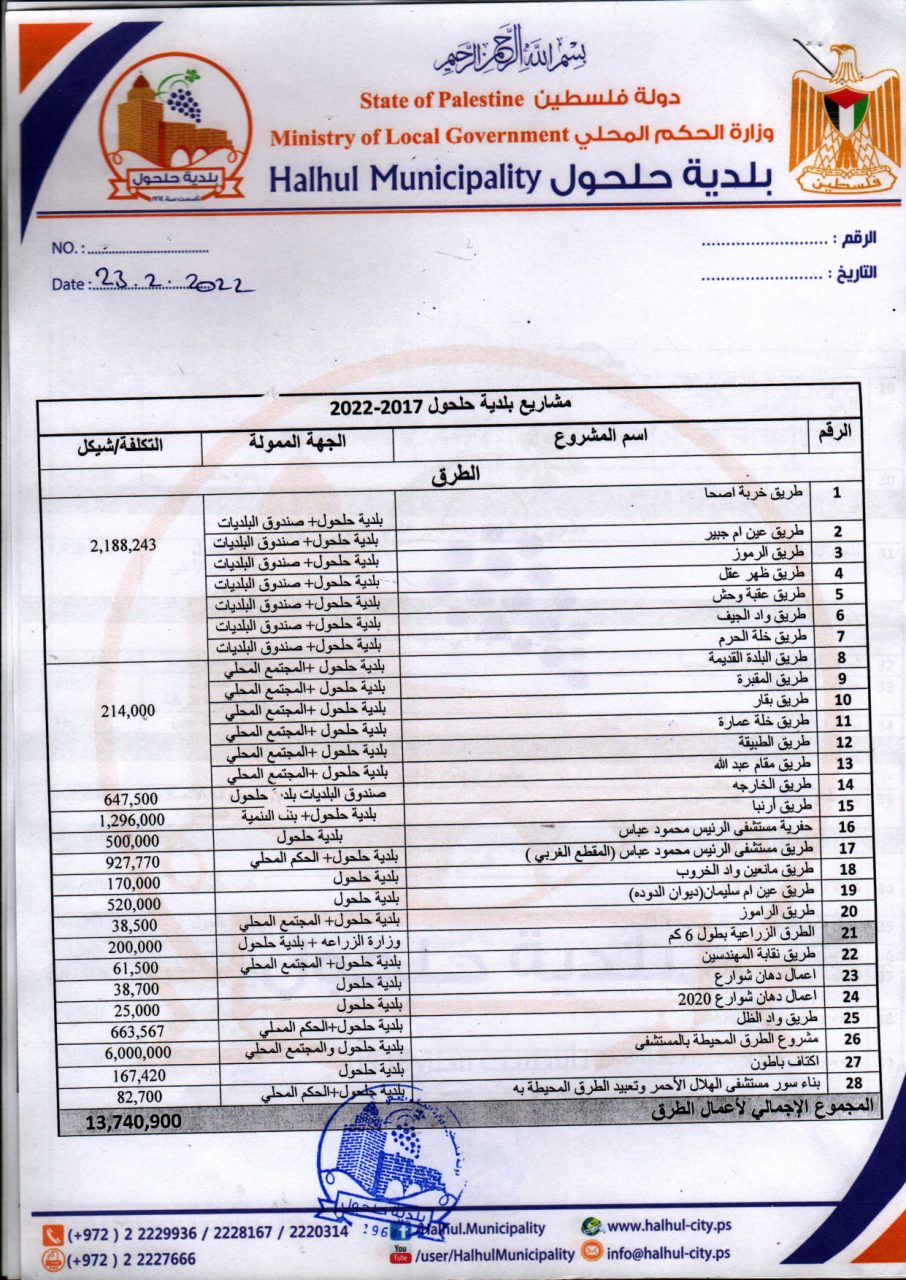 بسم الله الرحمن الرحيم
State of Palestine دولة فلسطين
Ministry of Local Government وزارة الحكم المحلي
Halhul Municipality بلدية حلحول
بلدية حلحول
تأسست سنة ١٩٦٤
فلسطين
NO. :
الرقم :
Date : 23.2.2022
التاريخ :
مشاريع بلدية حلحول 2017-2022
الرقم اسم المشروع الجهة الممولة التكلفة/شيكل
الطرق
1 طريق خربة اصحا بلدية حلحول+ صندوق البلديات 2,188,243
2 طريق عين ام جبير بلدية حلحول+ صندوق البلديات
3 طريق الرموز بلدية حلحول+ صندوق البلديات
4 طريق ظهر عقل بلدية حلحول+ صندوق البلديات
5 طريق عقبة وحش بلدية حلحول+ صندوق البلديات
6 طريق واد الجيف بلدية حلحول+ صندوق البلديات
7 طريق خلة الحرم بلدية حلحول+ صندوق البلديات
8 طريق البلدة القديمة بلدية حلحول +المجتمع المحلي 214,000
9 طريق المقبرة بلدية حلحول +المجتمع المحلي
10 طريق بقار بلدية حلحول +المجتمع المحلي
11 طريق خلة عمارة بلدية حلحول +المجتمع المحلي
12 طريق الطبيقة بلدية حلحول +المجتمع المحلي
13 طريق مقام عبد الله بلدية حلحول +المجتمع المحلي
14 طريق الخارجه صندوق البلديات بلدية حلحول 647,500
15 طريق أرنبا بلدية حلحول+ بنك التنمية 1,296,000
16 حفرية مستشفى الرئيس محمود عباس بلدية حلحول 500,000
17 طريق مستشفى الرئيس محمود عباس (المقطع الغربي ) بلدية حلحول+ الحكم المحلي 927,770
18 طريق مانعين واد الخروب بلدية حلحول 170,000
19 طريق عين ام سليمان(ديوان الدوده) بلدية حلحول 520,000
20 طريق الراموز بلدية حلحول+ المجتمع المحلي 38,500
21 الطرق الزراعية بطول 6 كم وزارة الزراعه + بلدية حلحول 200,000
22 طريق نقابة المهندسين بلدية حلحول+ المجتمع المحلي 61,500
23 اعمال دهان شوارع بلدية حلحول 38,700
24 اعمال دهان شوارع 2020 بلدية حلحول 25,000
25 طريق واد الظل بلدية حلحول+الحكم المحلي 663,567
26 مشروع الطرق المحيطة بالمستشفى بلدية حلحول والمجتمع المحلي 6,000,000
27 اكتاف باطون بلدية حلحول 167,420
28 بناء سور مستشفى الهلال الأحمر وتعبيد الطرق المحيطة به بلدية حلحول+الحكم المحلي 82,700
المجموع الإجمالي لأعمال الطرق 13,740,900
بلدية حلحول
1964
(+972 ) 2 2229936 / 2228167 / 2220314
/Halhul.Municipality
www.halhul-city.ps
(+972 ) 2 2227666
You Tube
/user/HalhulMunicipality
info@halhul-city.ps